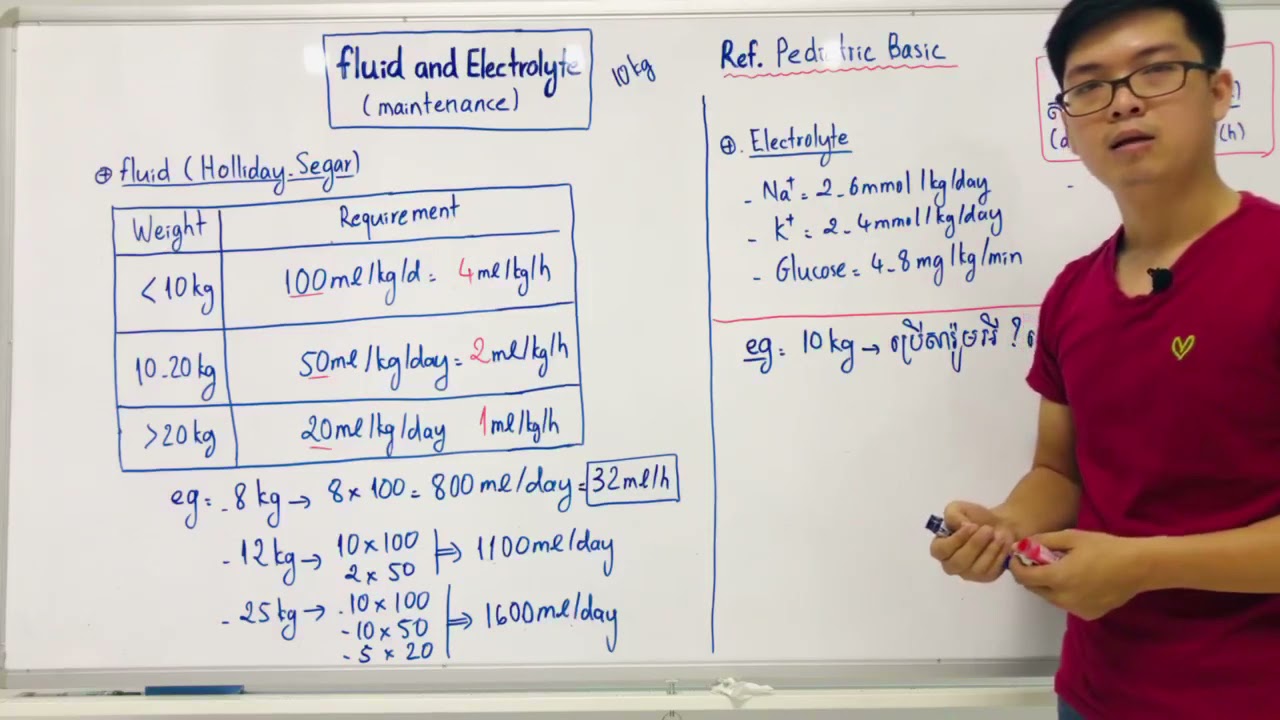 fluid and Electrolyte
(maintenance)
10kg
Ref. Pediatric Basic
⊕ fluid (Holliday-Segar)
Weight Requirement
<10kg 100ml/kg/d = 4ml/kg/h
10-20kg 50ml/kg/day = 2ml/kg/h
>20kg 20ml/kg/day 1ml/kg/h
eg: - 8 kg → 8 × 100 = 800 ml/day = 32ml/h
- 12 kg → 10 × 100 ⇒ 1100ml/day
2 × 50
- 25 kg → - 10 × 100 ⇒ 1600ml/day
- 10 × 50
- 5 × 20
⊕. Electrolyte
- Na+ = 2-6mmol/kg/day
- K+ = 2-4mmol/kg/day
- Glucose = 4-8mg/kg/min
eg: 10kg → ប្រើសារ៉ូមអី ?
(h)